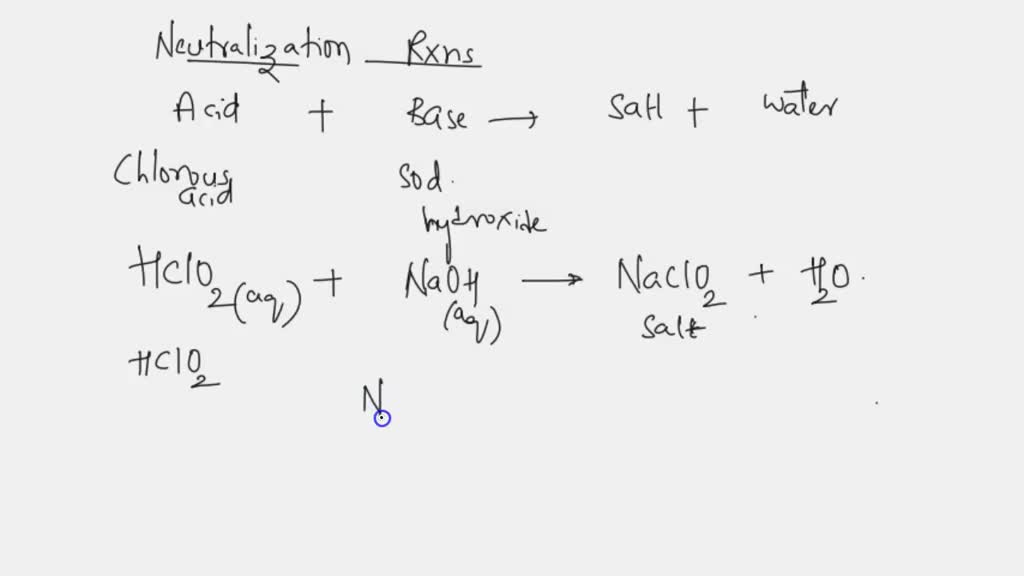 Neutralization Rxns
Acid + Base → Salt + water
Chlorous acid
sod. hydroxide
HClO2(aq) + NaOH(aq) → NaClO2 + H2O.
Salt
HClO2
N